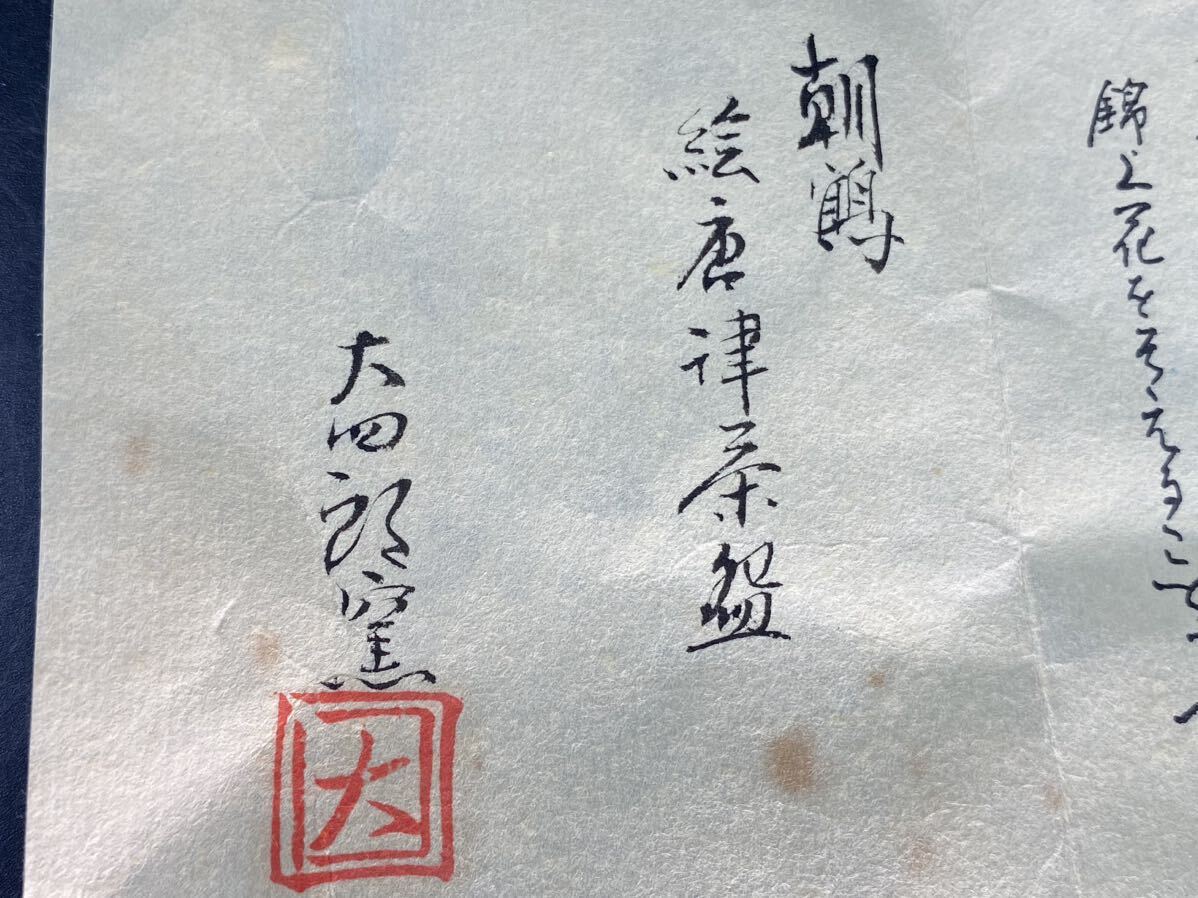 錦上花をそえたるこ
朝鶴
絵唐津茶盌
大四郎窯
大